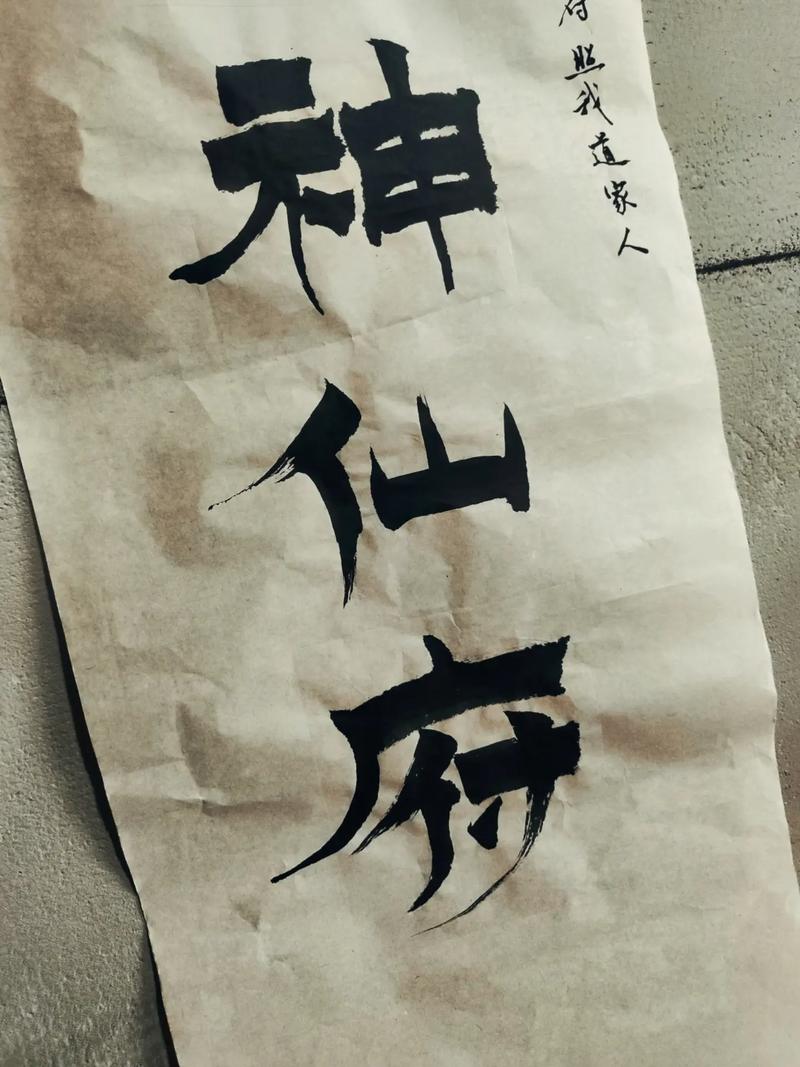 照我道家人
神仙府